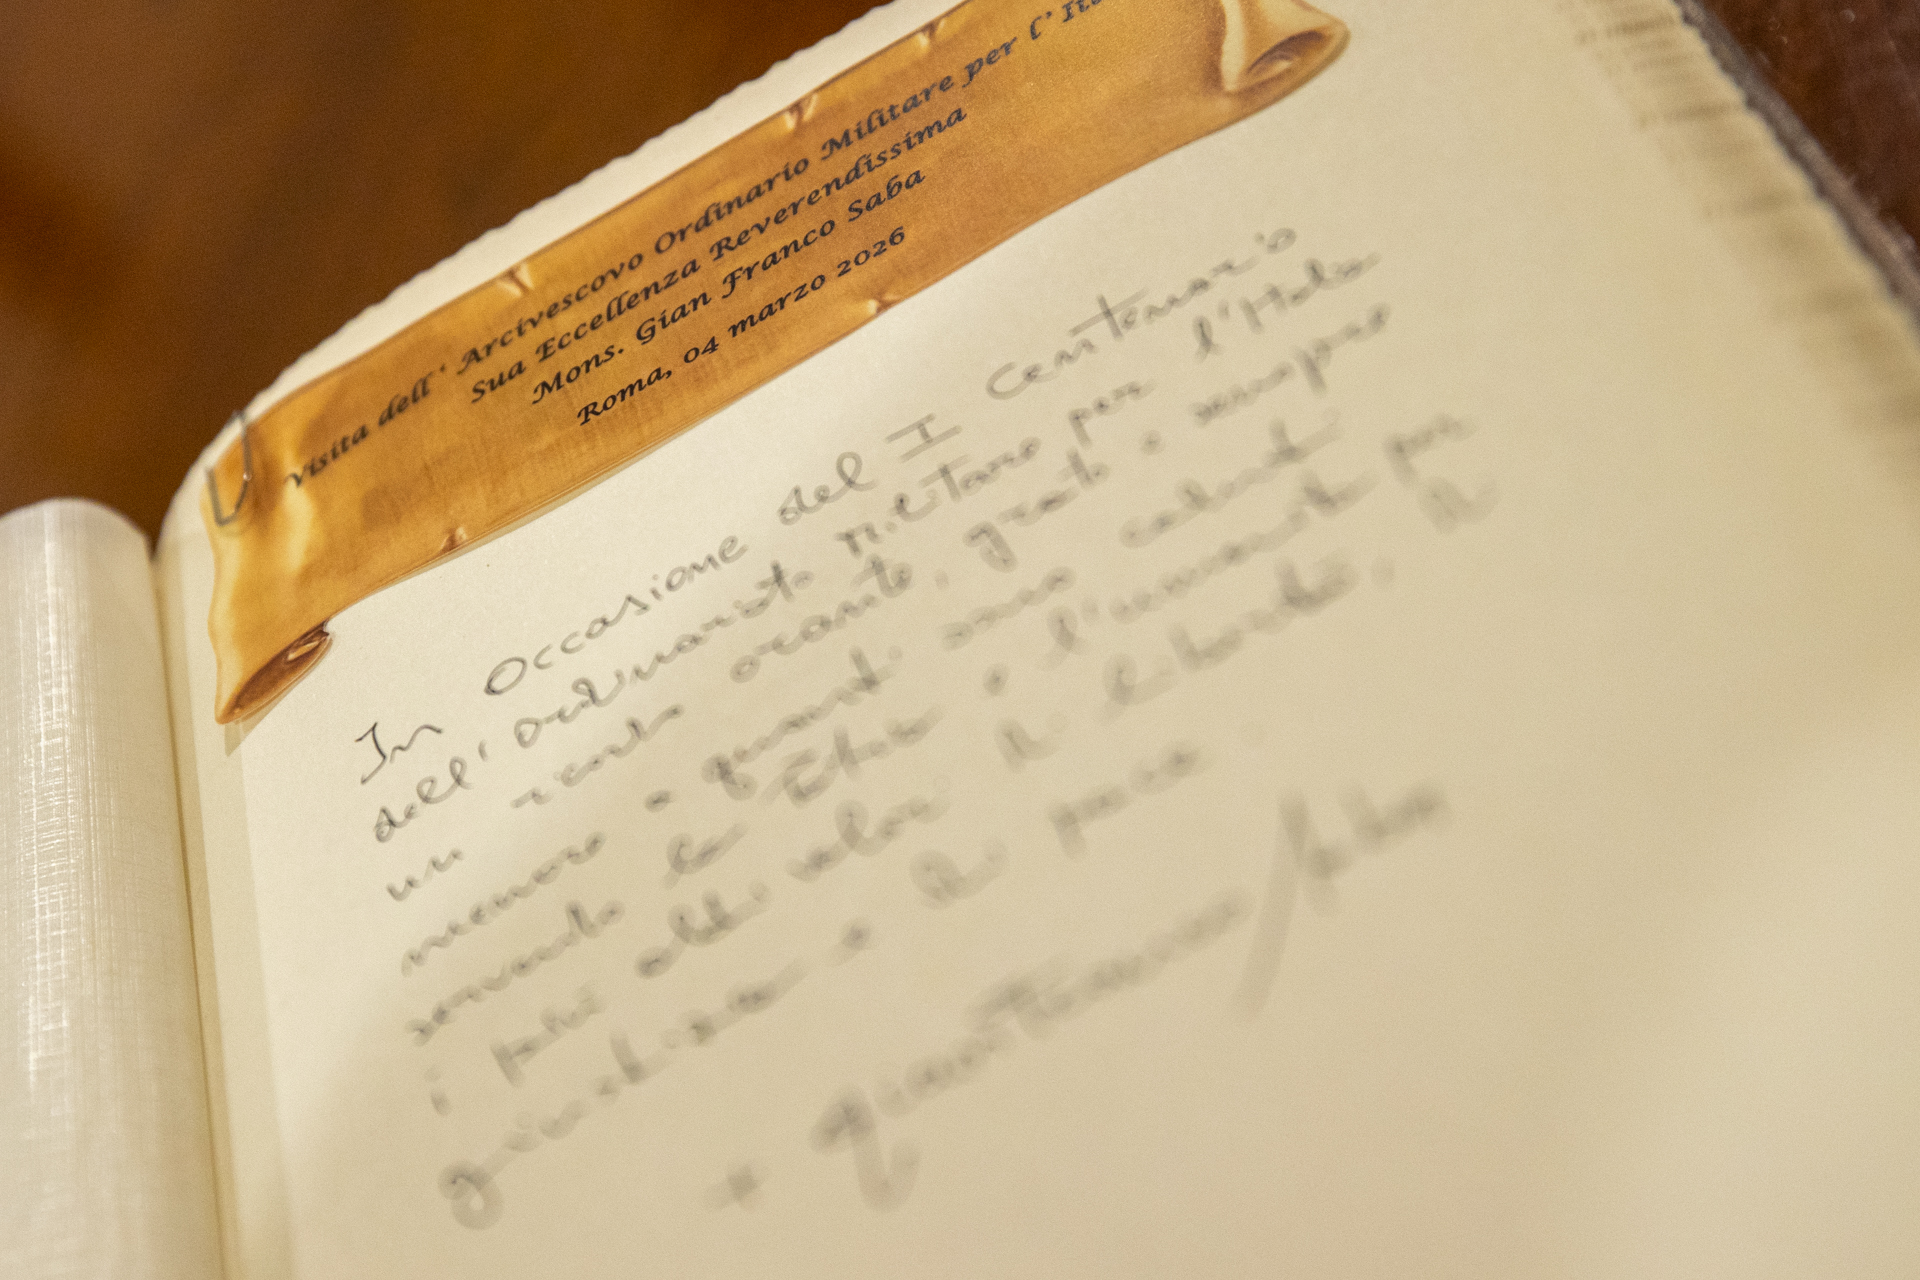 Visita dell' Arcivescovo Ordinario Militare per l'
Sua Eccellenza Reverendissima
Mons. Gian Franco Saba
Roma, 04 marzo 2026
In Occasione del I Centenario
dell'ordinariato militare per l'Italia
un ricordo orante, grato e sempre
memore a quanti sono caduti
servendo lo Stato e l'umanità per
i valori di libertà, di
giustizia e di pace.
+ Gianfranco Saba